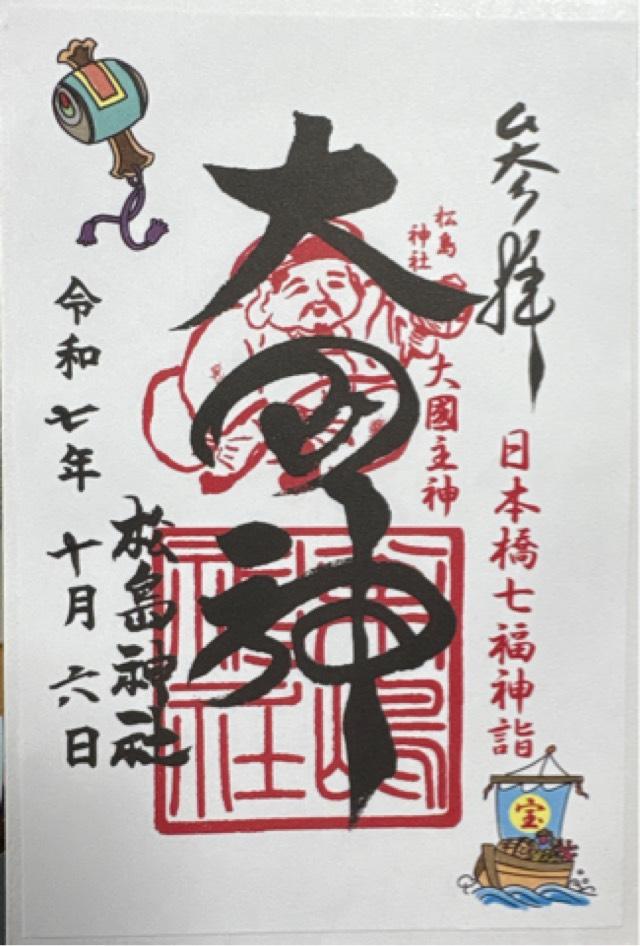 参拝
日本橋七福神詣
宝
松島
神社
大國主神
大国神
松島神社
松島神社
令和七年 十月 六日